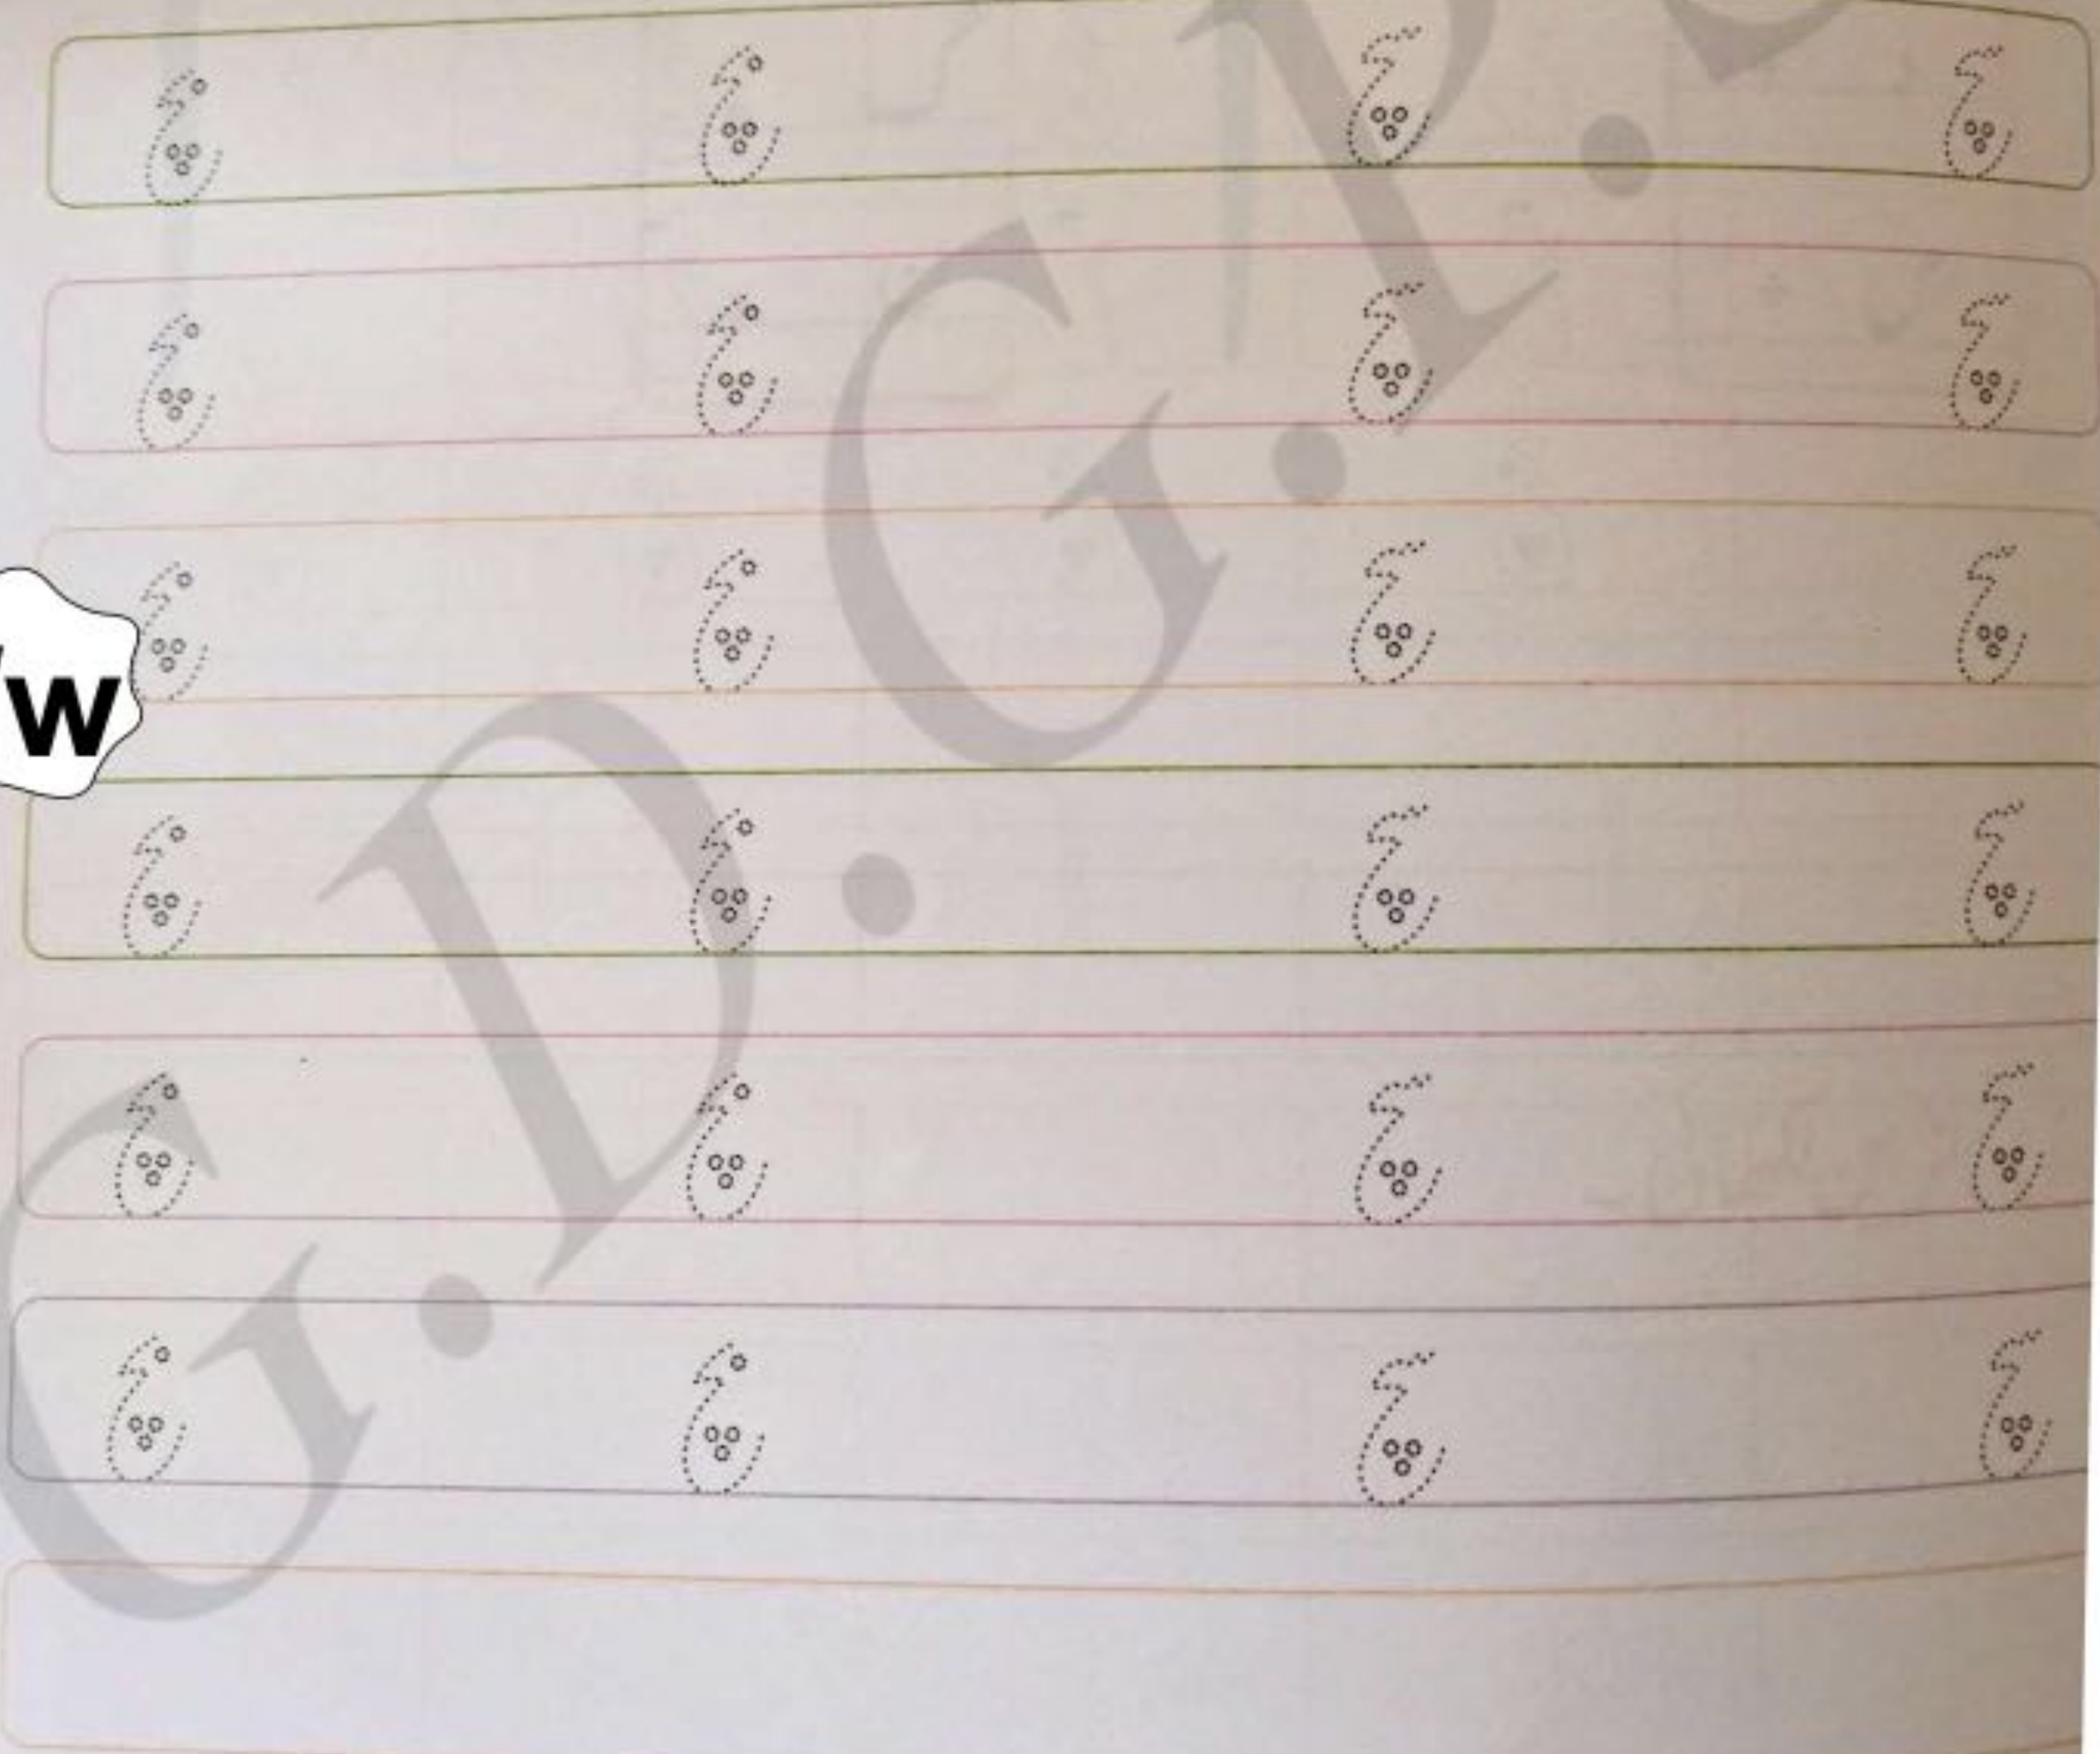 چ چ چ چ
چ چ چ چ
چ چ چ چ
W
چ چ چ چ
چ چ چ چ
چ چ چ چ
G.D.G.P.